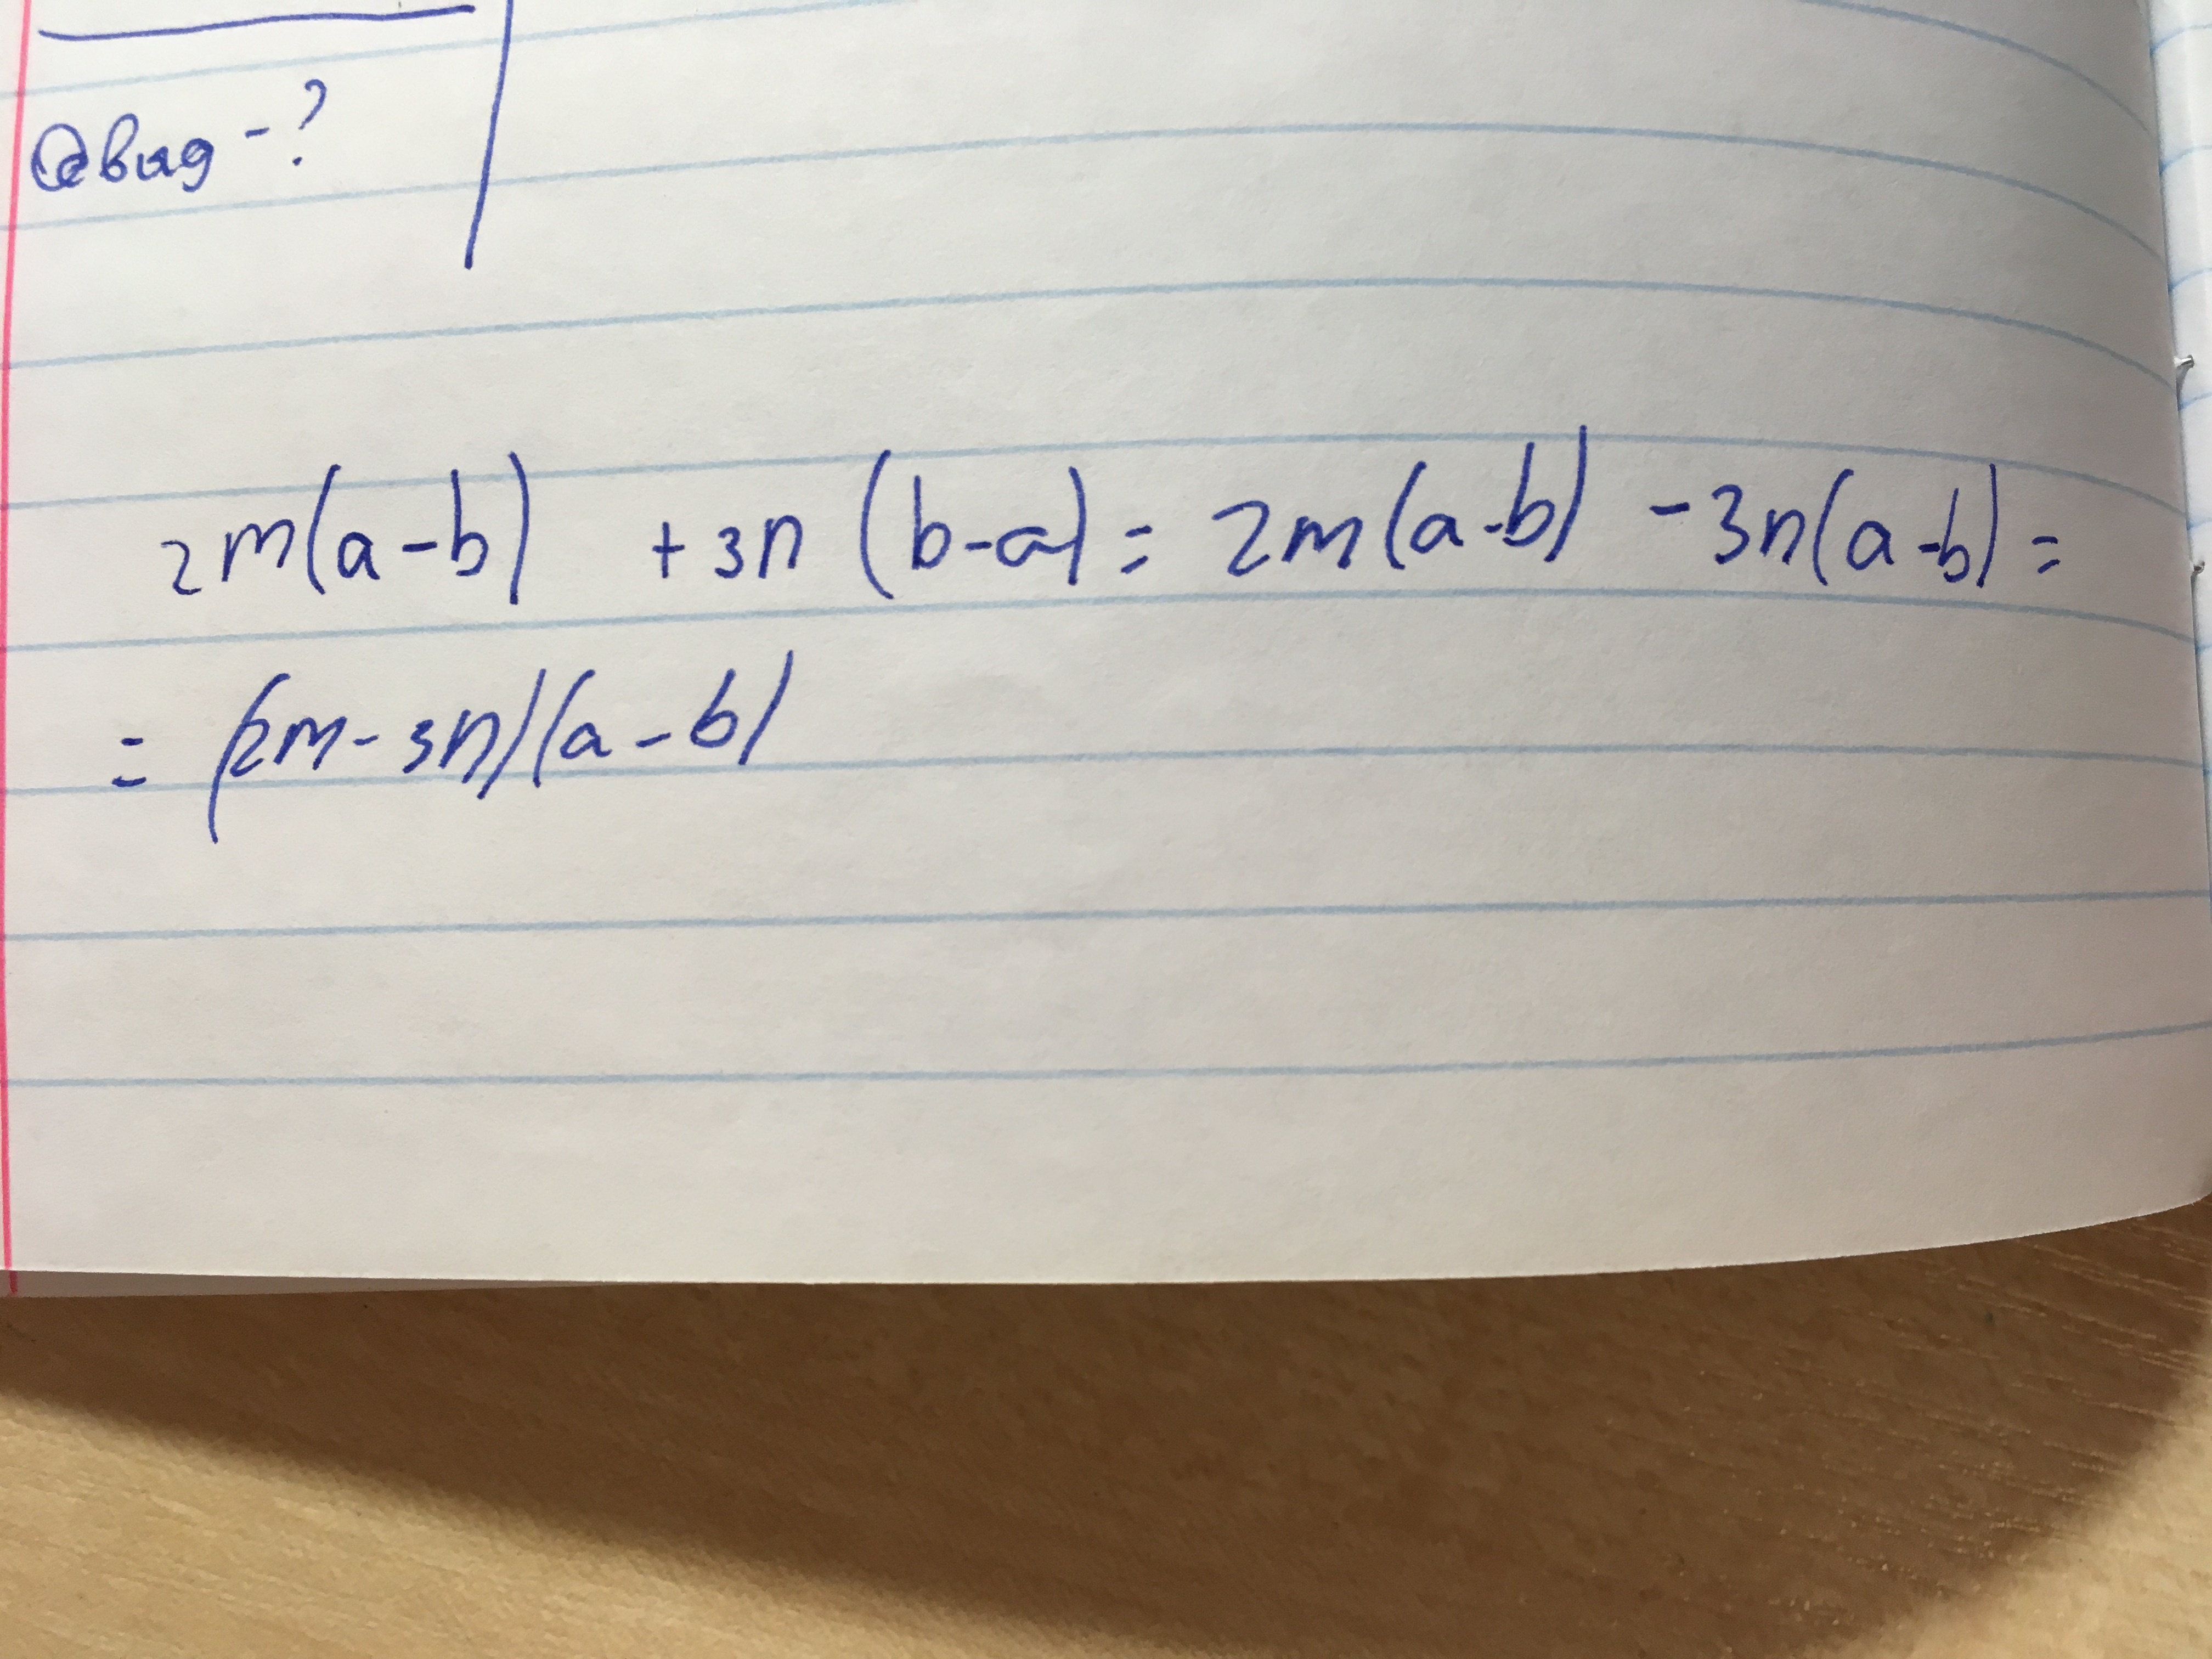 Qвид - ?
2m(a-b) + 3n (b-a) = 2m(a-b) - 3n(a-b) =
= (2m - 3n)(a - b)